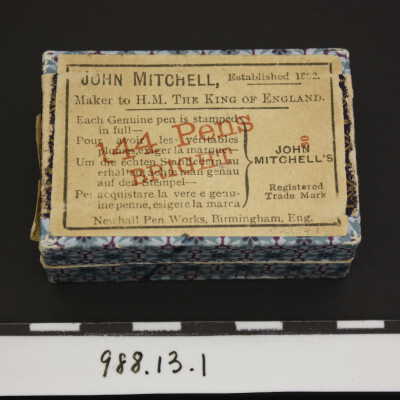 JOHN MITCHELL, Established 1822.
Maker to H.M. THE KING OF ENGLAND.
Each Genuine pen is stamped
in full—
Pour avoir les véritables
plumes, exiger la marque
Um die echten Stahlfedern zu
erhalten, achte man genau
auf den Stempel—
Per acquistare la vere e genu-
ine penne, esigere la marca
JOHN
MITCHELL'S
Registered
Trade Mark
144 Pens
Newhall Pen Works, Birmingham, Eng.
988.13.1